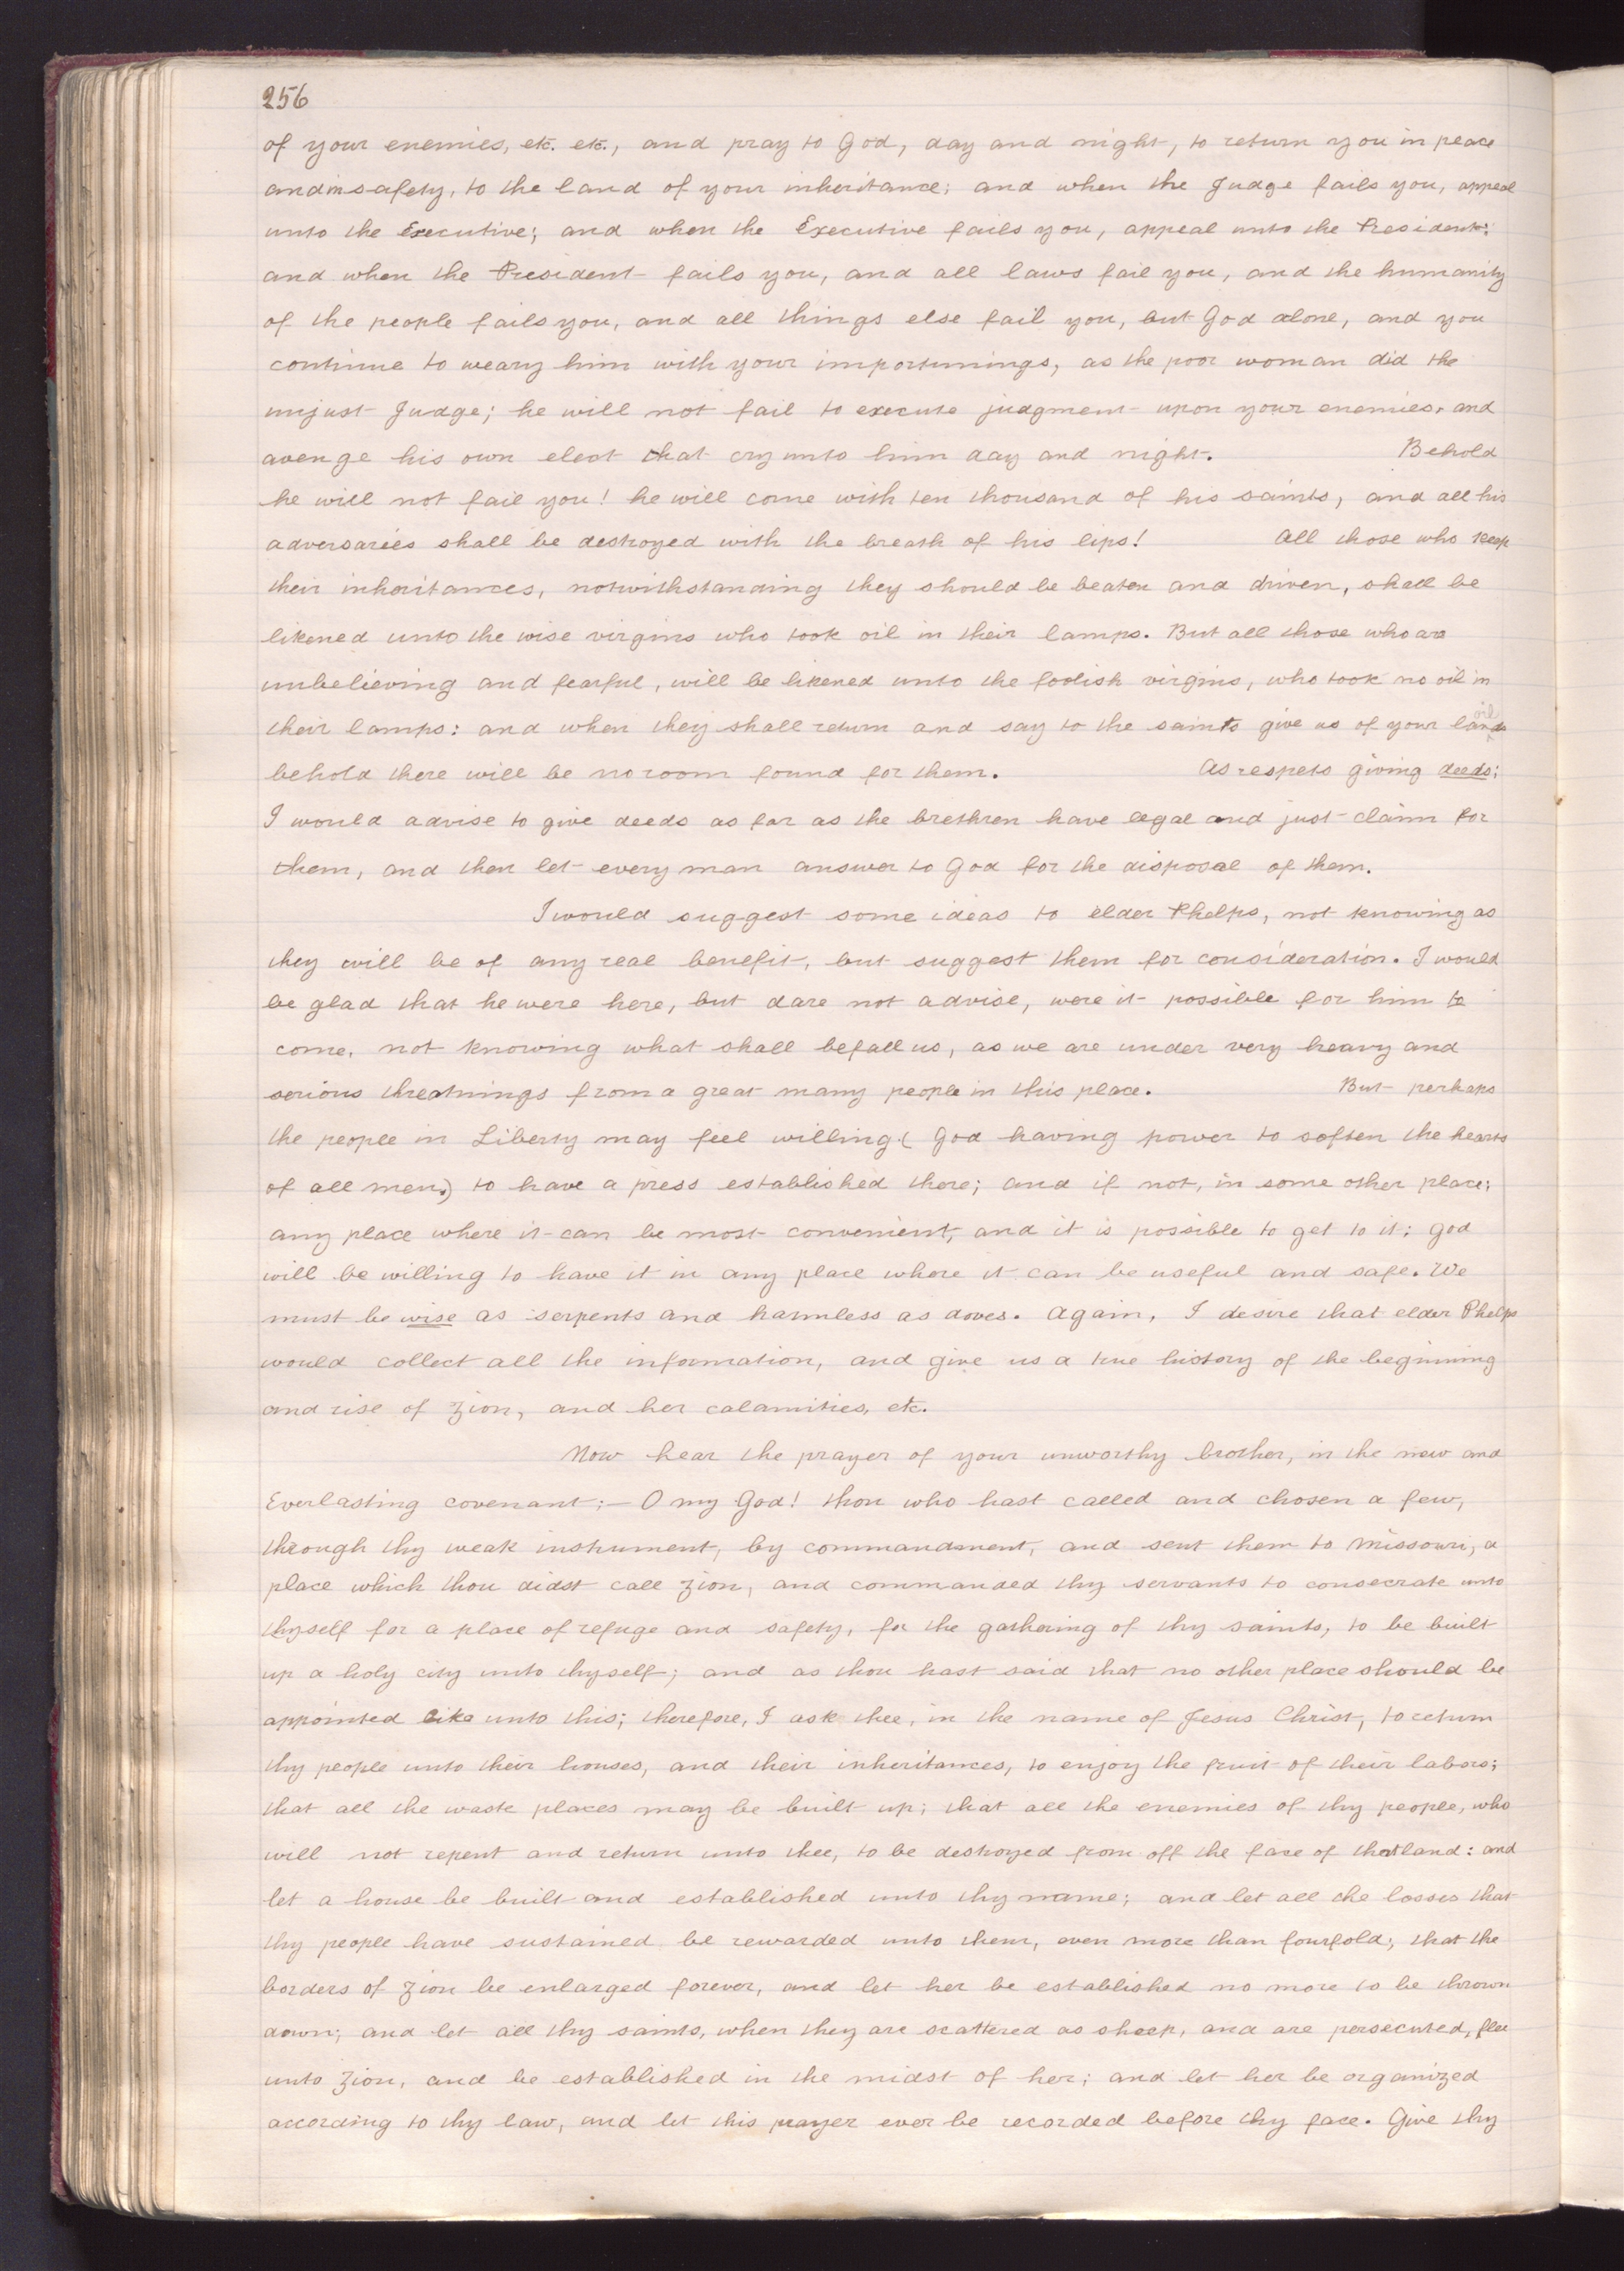 256
of your enemies, etc. etc., and pray to God, day and night, to return you in peace
and in safety, to the land of your inheritance; and when the Judge fails you, appeal
unto the Executive; and when the Executive fails you, appeal unto the President:
and when the President fails you, and all laws fail you, and the humanity
of the people fails you, and all things else fail you, but God alone, and you
continue to weary him with your importunings, as the poor woman did the
unjust Judge; he will not fail to execute judgment upon your enemies, and
avenge his own elect that cry unto him day and night. Behold
he will not fail you! he will come with ten thousand of his saints, and all his
adversaries shall be destroyed with the breath of his lips! All those who keep
their inheritances, notwithstanding they should be beaten and driven, shall be
likened unto the wise virgins who took oil in their lamps. But all those who are
unbelieving and fearful, will be likened unto the foolish virgins, who took no oil in
their lamps: and when they shall return and say to the saints give us of your lands
oil
behold there will be no room found for them. As respets giving deeds:
I would advise to give deeds as far as the brethren have legal and just claim for
them, and then let every man answer to God for the disposal of them.
I would suggest some ideas to elder Phelps, not knowing as
they will be of any real benefit, but suggest them for consideration. I would
be glad that he were here, but dare not advise, were it possible for him to
come, not knowing what shall befall us, as we are under very heavy and
serious threatnings from a great many people in this place. But perhaps
the people in Liberty may feel willing (God having power to soften the hearts
of all men.) to have a press established there; and if not, in some other place;
any place where it can be most convenient, and it is possible to get to it; God
will be willing to have it in any place where it can be useful and safe. We
must be wise as serpents and harmless as doves. Again, I desire that elder Phelps
would collect all the information, and give us a true history of the beginning
and rise of Zion, and her calamities, etc.
Now hear the prayer of your unworthy brother, in the new and
Everlasting covenant;— O my God! thou who hast called and chosen a few,
through thy weak instrument, by commandment, and sent them to Missouri, a
place which thou didst call Zion, and commanded thy servants to consecrate unto
thyself for a place of refuge and safety, for the gathering of thy saints, to be built
up a holy city unto thyself; and as thou hast said that no other place should be
appointed like unto this; therefore, I ask thee, in the name of Jesus Christ, to return
thy people unto their houses, and their inheritances, to enjoy the fruit of their labors;
that all the waste places may be built up; that all the enemies of thy people, who
will not repent and return unto thee, to be destroyed from off the face of that land: and
let a house be built and established unto thy name; and let all the losses that
thy people have sustained be rewarded unto them, even more than fourfold; that the
borders of Zion be enlarged forever, and let her be established no more to be thrown
down; and let all thy saints, when they are scattered as sheep, and are persecuted, flee
unto Zion, and be established in the midst of her; and let her be organized
according to thy law, and let this prayer ever be recorded before thy face. Give thy